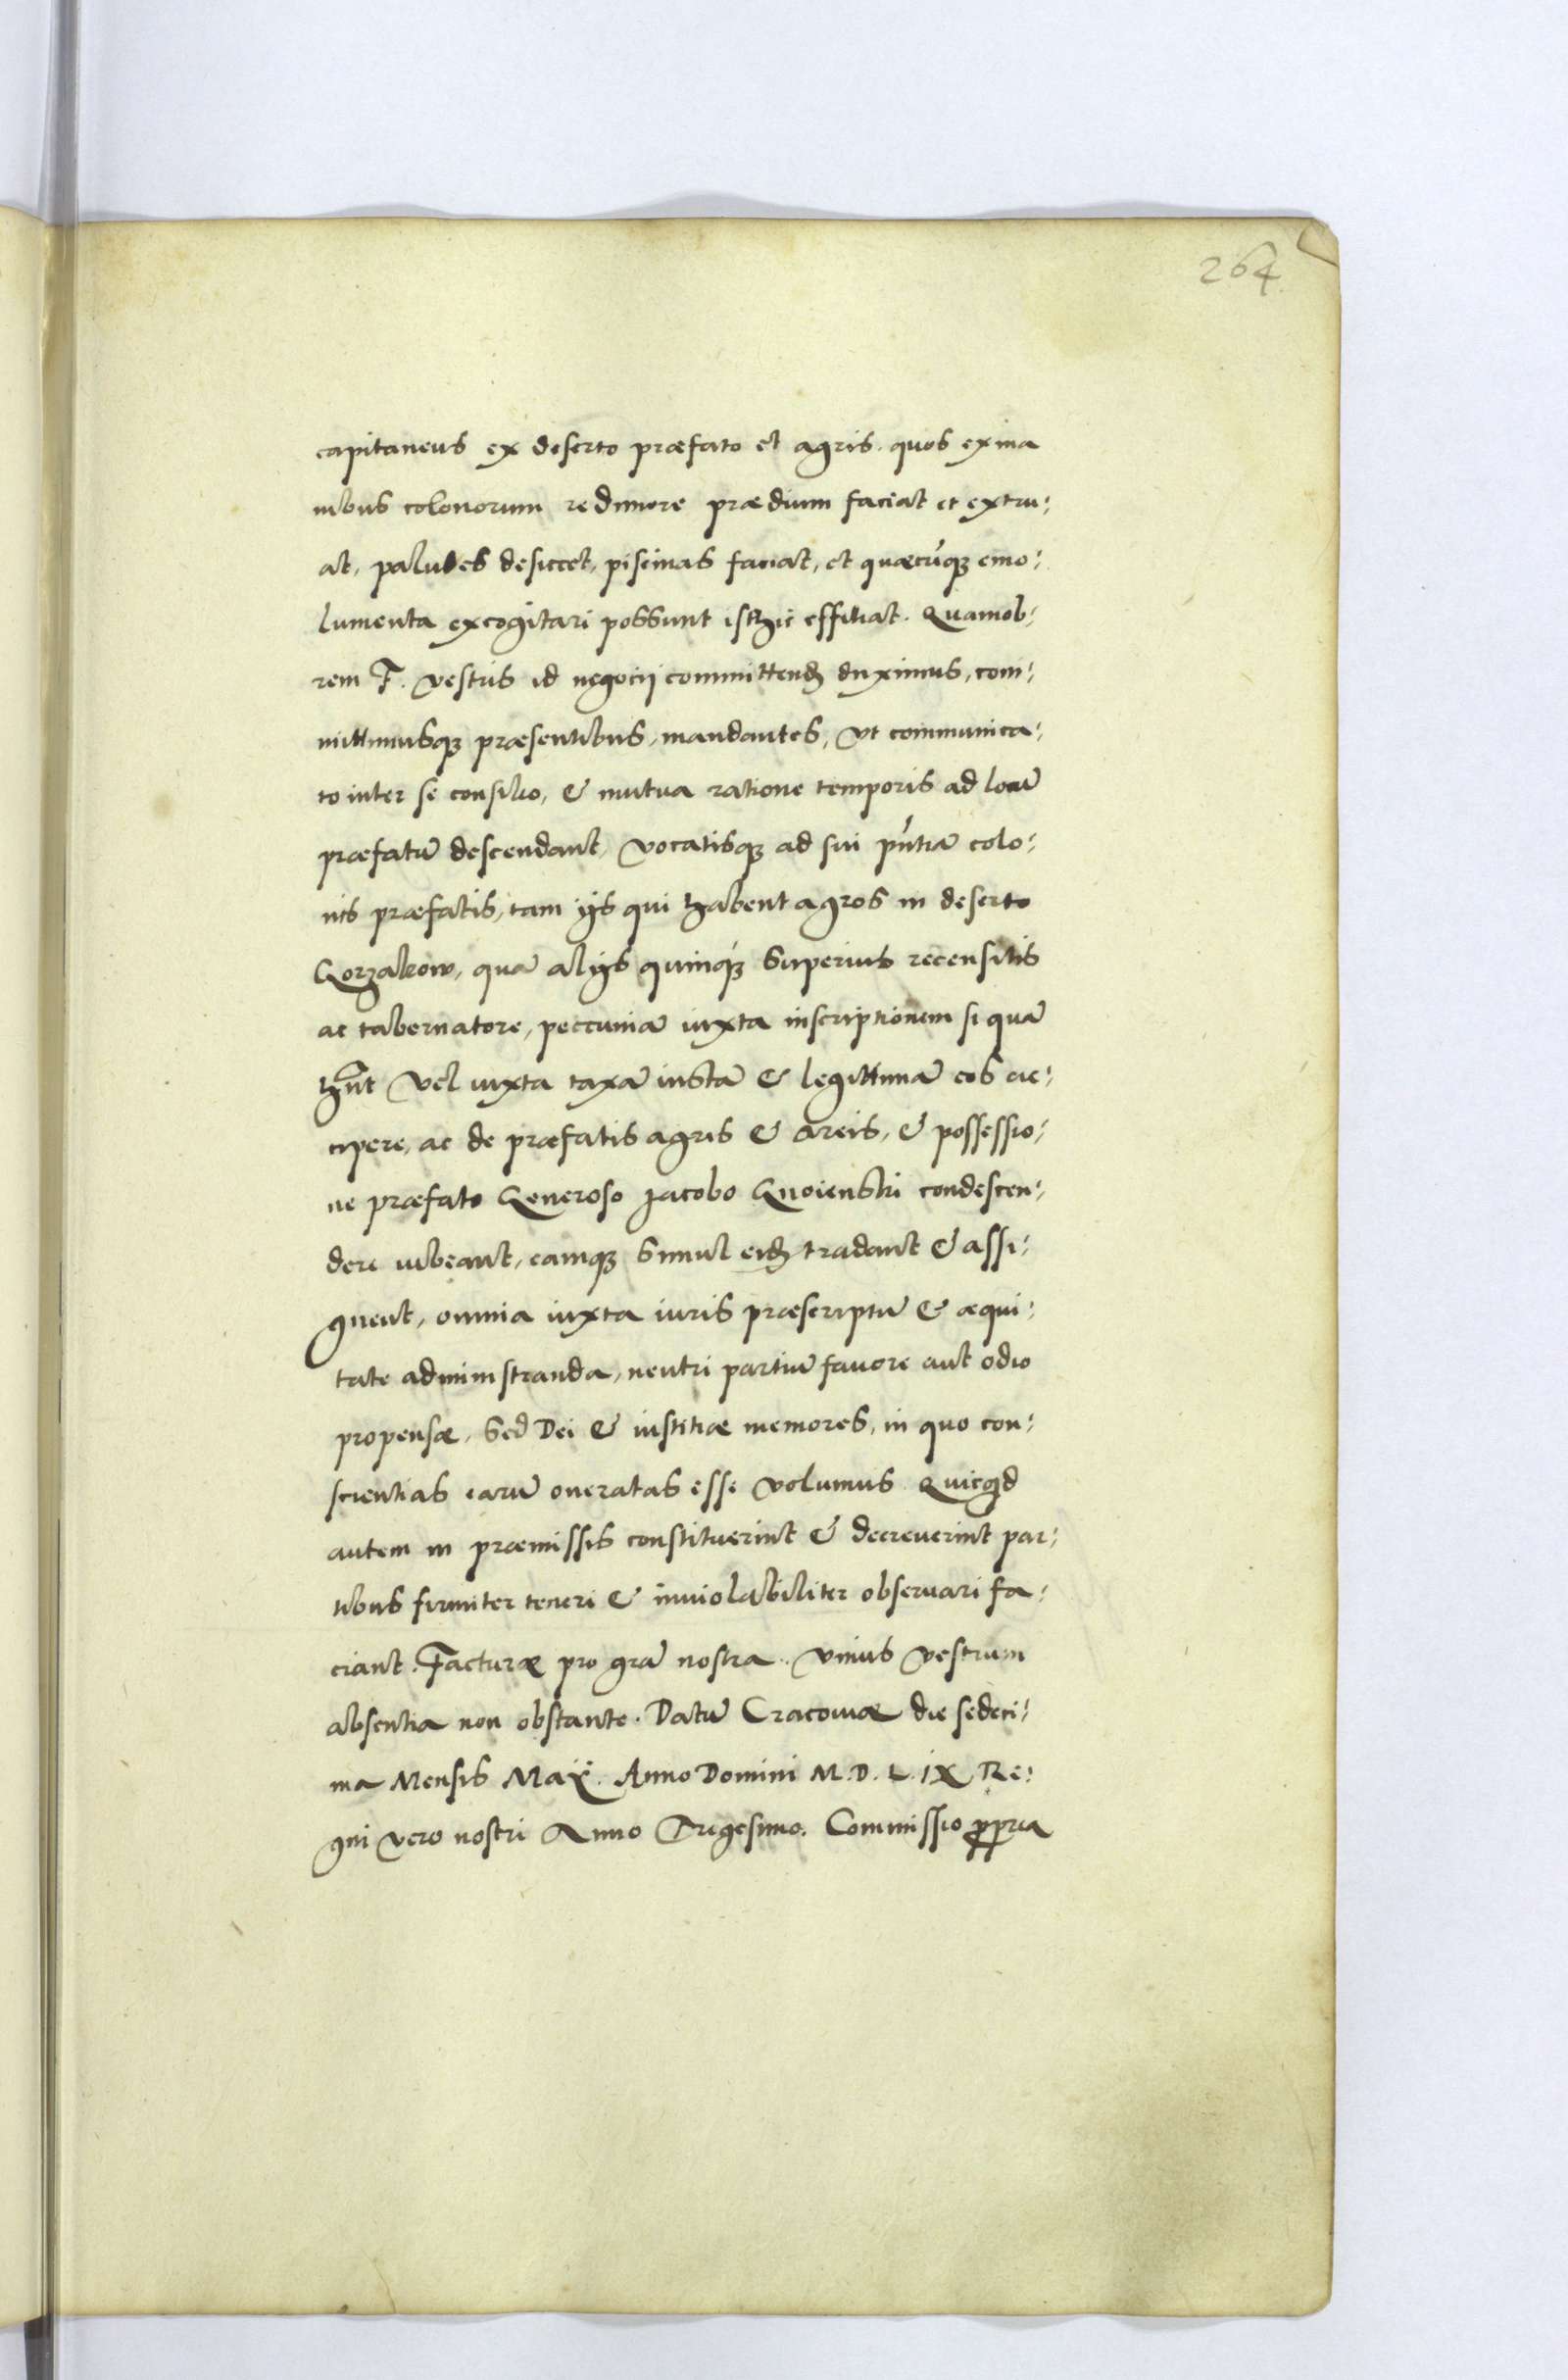 264
capitaneus ex deserto præfato et agris, quos ex ma
nibus colonorum redimere prædium faciat et extru:
at, paludes desiccet, piscinas faciat, et quæcũqꝫ emo:
lumenta excogitari possunt isthic efficiat. Quamob:
rem F. vestris id negocij committendꝫ duximus, com:
mittimusqꝫ præsentibus, mandantes, vt communica:
to inter se consilio, & mutua ratione temporis ad locũ
præfatũ descendant, vocatisqꝫ ad sui pñtiã colo:
nis præfatis, tam ijs qui habent agros in deserto
Gorzakow, quã alijs quinqꝫ superius recensitis
ac tabernatore, peccuniã iuxta inscriptionem si quã
hñt vel iuxta taxã iustã & legittimã eos ac:
cipere, ac de præfatis agris & areis, & possessio:
ne præfato Generoso Jacobo Gnoienski condescen:
dere iubeant, eamqꝫ simul eidꝫ tradant & assi:
gnent, omnia iuxta iuris præscriptũ & æqui:
tate administranda, neutri partiũ fauore aut odio
propensæ, Sed Dei & iustitiæ memores, in quo con:
scientias earũ oneratas esse volumus Quicqd
autem in præmissis constituerint & decreuerint par:
tibus firmiter teneri & inuiolabiliter obseruari fa:
ciant. Facturæ pro grã nostra. vnius vestrum
absentia non obstante. Datũ Cracouiæ die sedeci:
ma Mensis Maij. Anno Domini M.D.L.IX Re:
gni vero nostri Anno Trigesimo. Commissio ppria